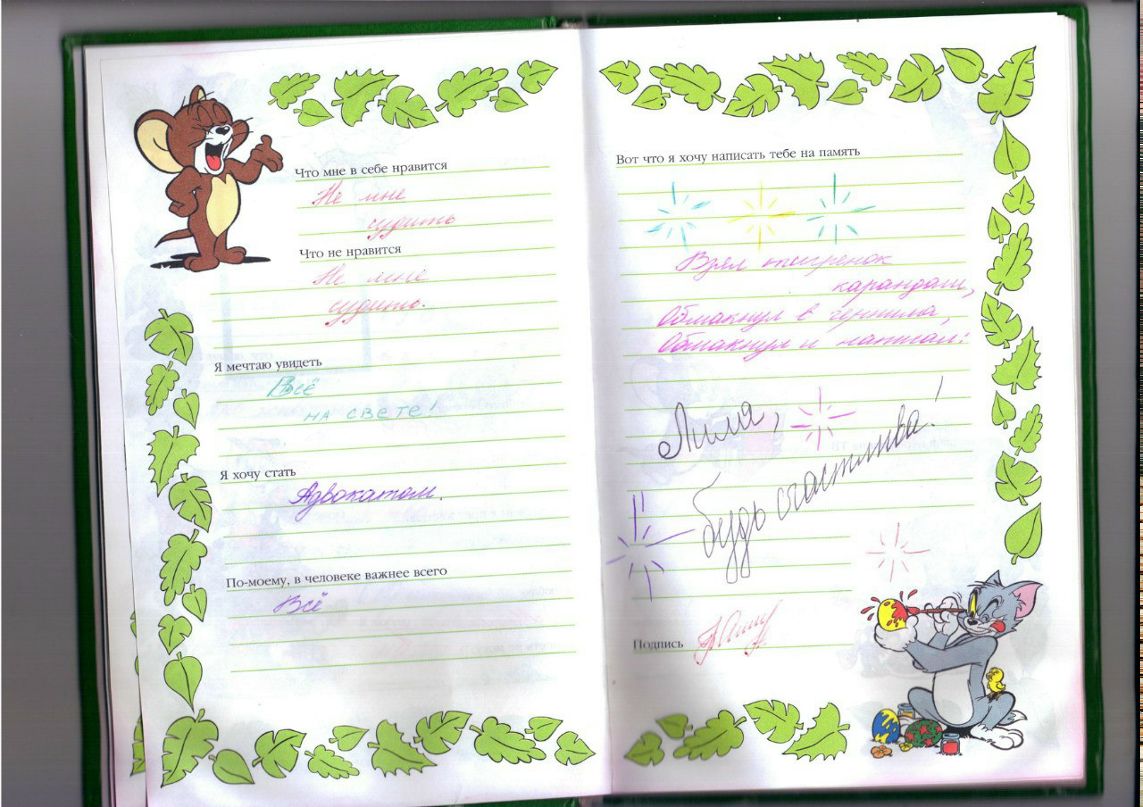 Что мне в себе нравится
Не мне
судить
Что не нравится
Не мне
судить.
Я мечтаю увидеть
Всё
на свете!
Я хочу стать
Адвокатом.
По-моему, в человеке важнее всего
Всё
Вот что я хочу написать тебе на память
Взял тигренок
карандаш,
Обмакнул в чернила,
Обмакнул и написал:
Лиля,
будь счастлива!
Подпись